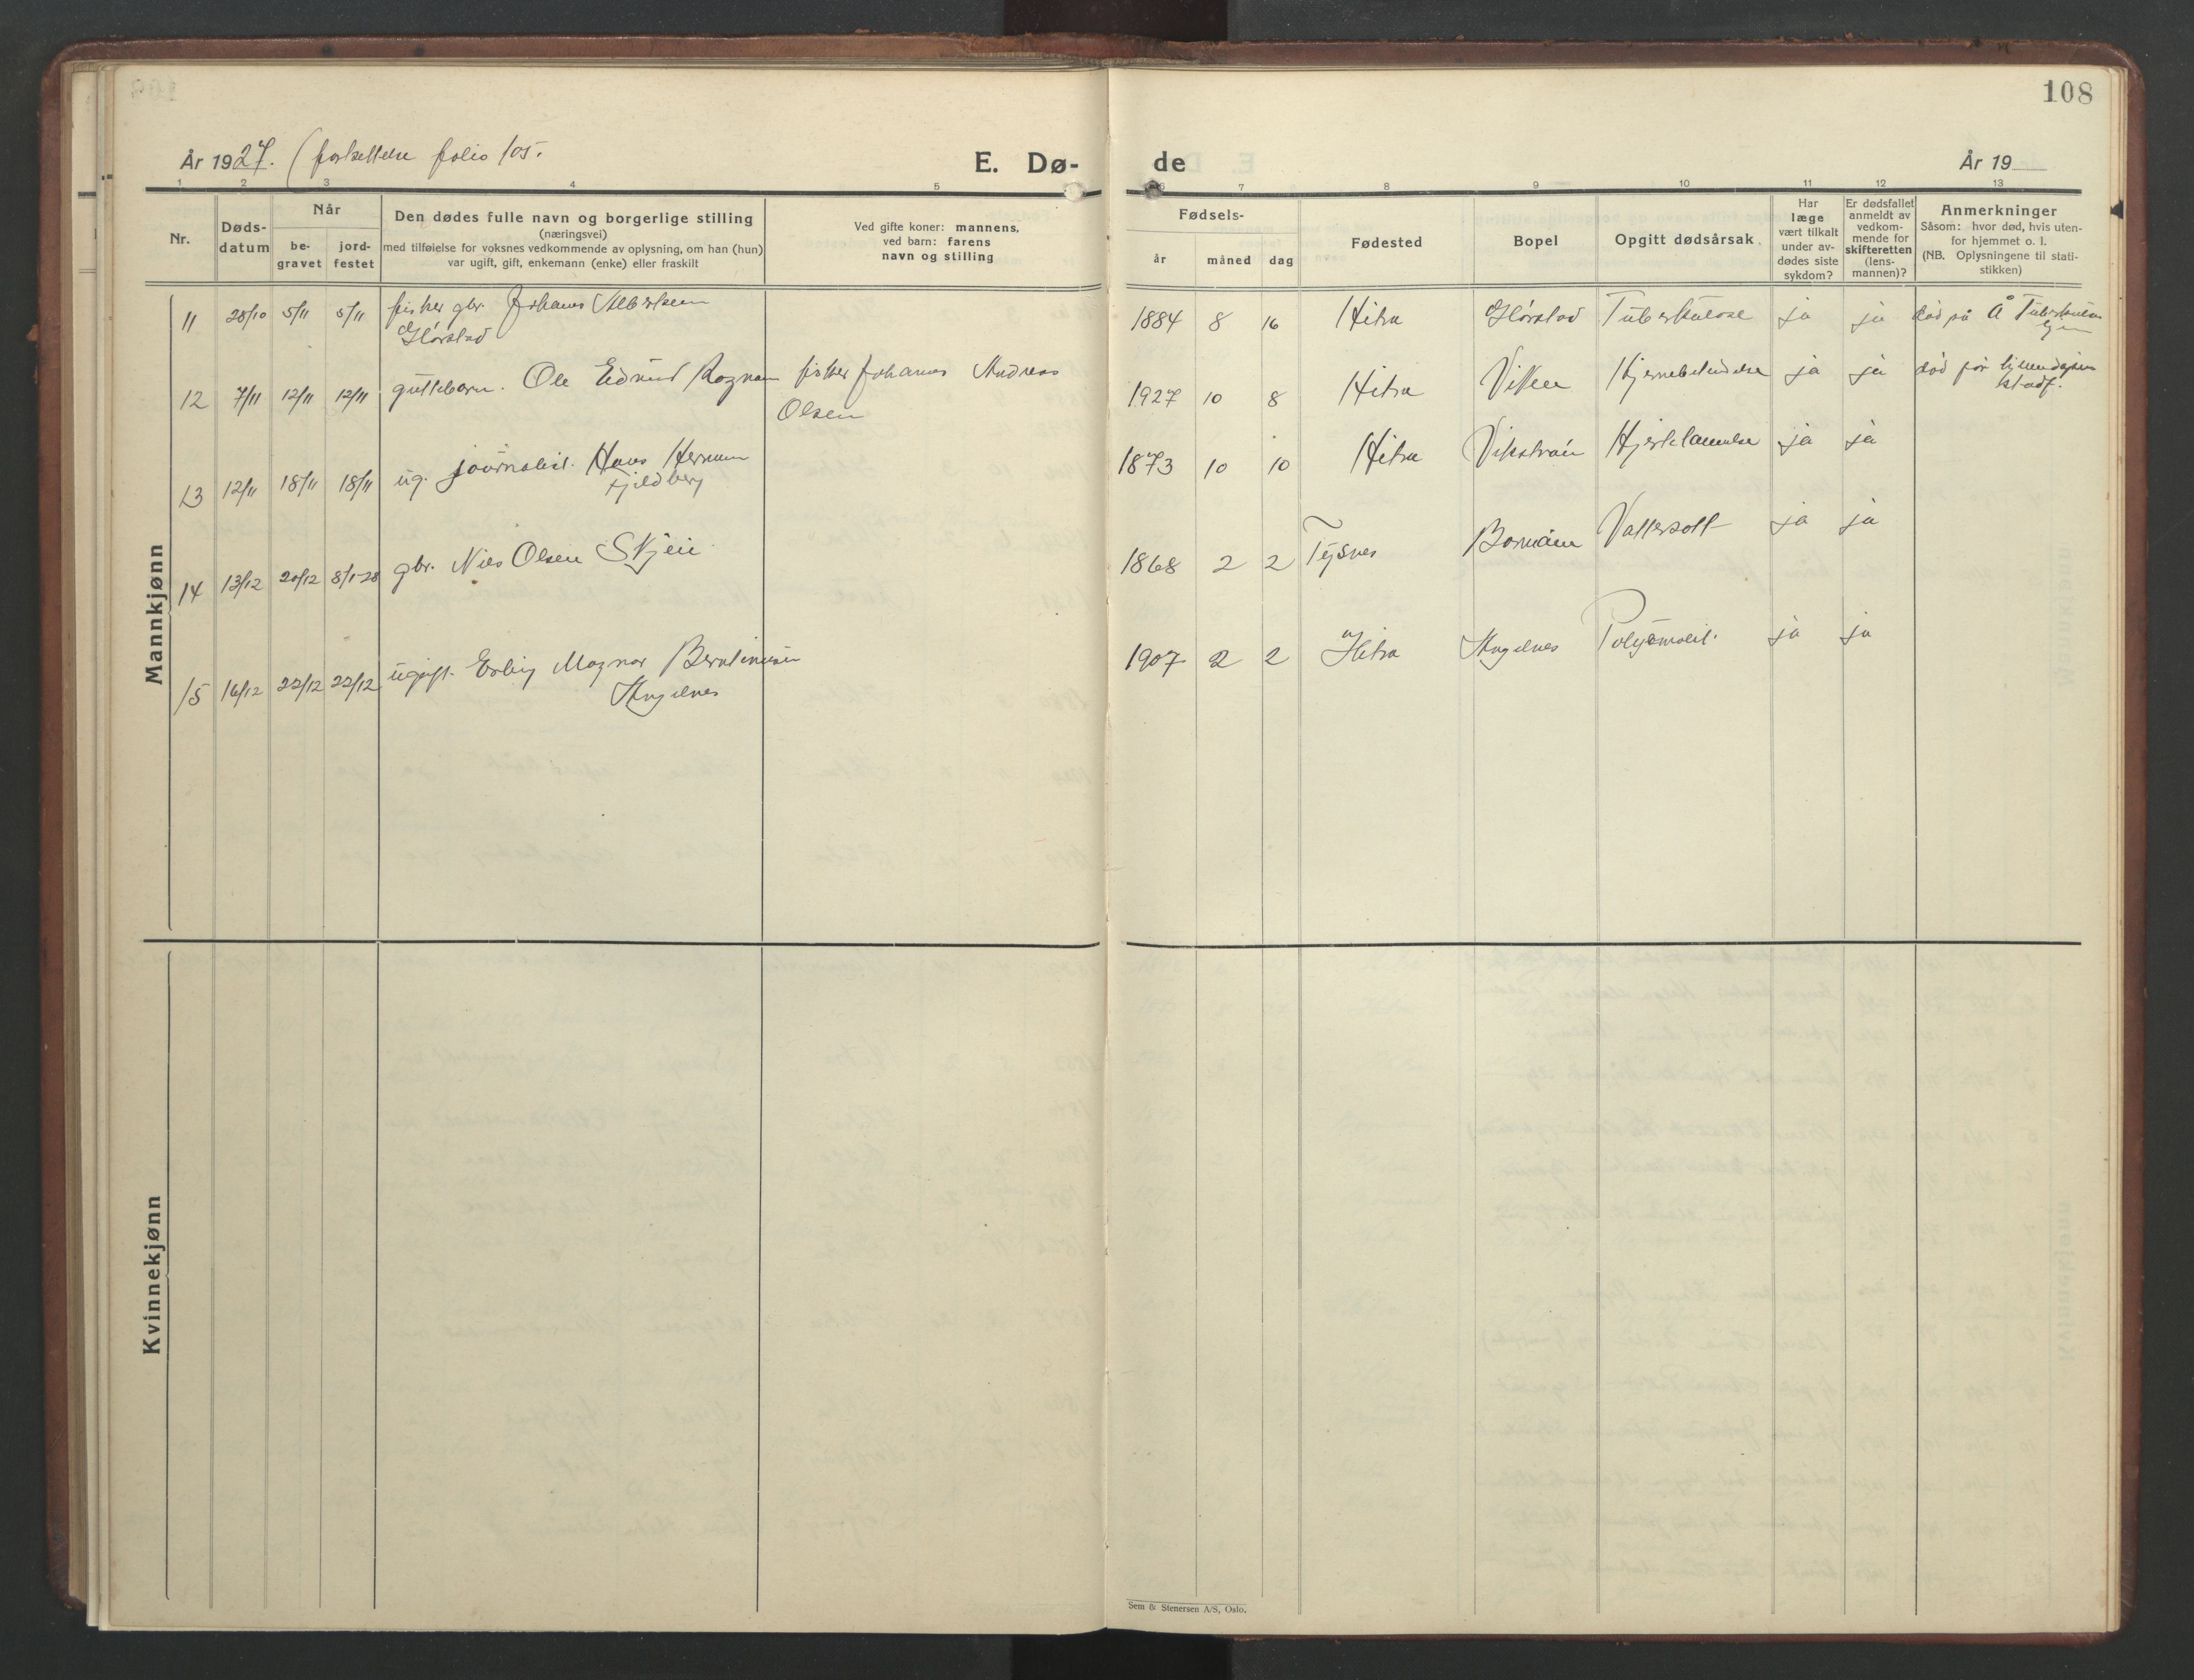 108
År 1927. (fortsettelse folio 105.
E. Dø-
de
År 19
1 2 3 4 5 6 7 8 9 10 11 12 13
Nr.
Døds-
datum
Når
be-
gravet
jord-
festet
Den dødes fulle navn og borgerlige stilling
(næringsvei)
med tilføielse for voksnes vedkommende av oplysning, om han (hun)
var ugift, gift, enkemann (enke) eller fraskilt
Ved gifte koner: mannens,
ved barn: farens
navn og stilling
Fødsels-
år måned dag
Fødested
Bopel
Opgitt dødsårsak
Har
læge
vært tilkalt
under av-
dødes siste
sykdom?
Er dødsfallet
anmeldt av
vedkom-
mende for
skifteretten
(lens-
mannen)?
Anmerkninger
Såsom: hvor død, hvis uten-
for hjemmet o. l.
(NB. Oplysningene til stati-
stikken)
Mannkjønn
11 28/10 5/11 5/11 fisker gbr. Johans Albertsen 1884 8 16 Hitra Tuberkulose ja ja død på Å
12 7/11 12/11 12/11 guttebarn. Ole Edmund Ragnar fisker Johannes Andreas 1927 10 8 Hitra Viken ja ja død før
Olsen
13 12/11 18/11 18/11 ug. journalist. Hans Herman 1873 10 10 Hitra Hjertelammelse ja ja
Fjeldberg
14 13/12 20/12 8/1-28 gbr. Nils Olsen Skjeie 1868 2 2 Tysnes Vattersott ja ja
15 16/12 22/12 22/12 ugift. Erling Magnar 1907 2 2 Hitra ja ja
Kvinnekjønn
Sem & Stenersen A/S, Oslo.